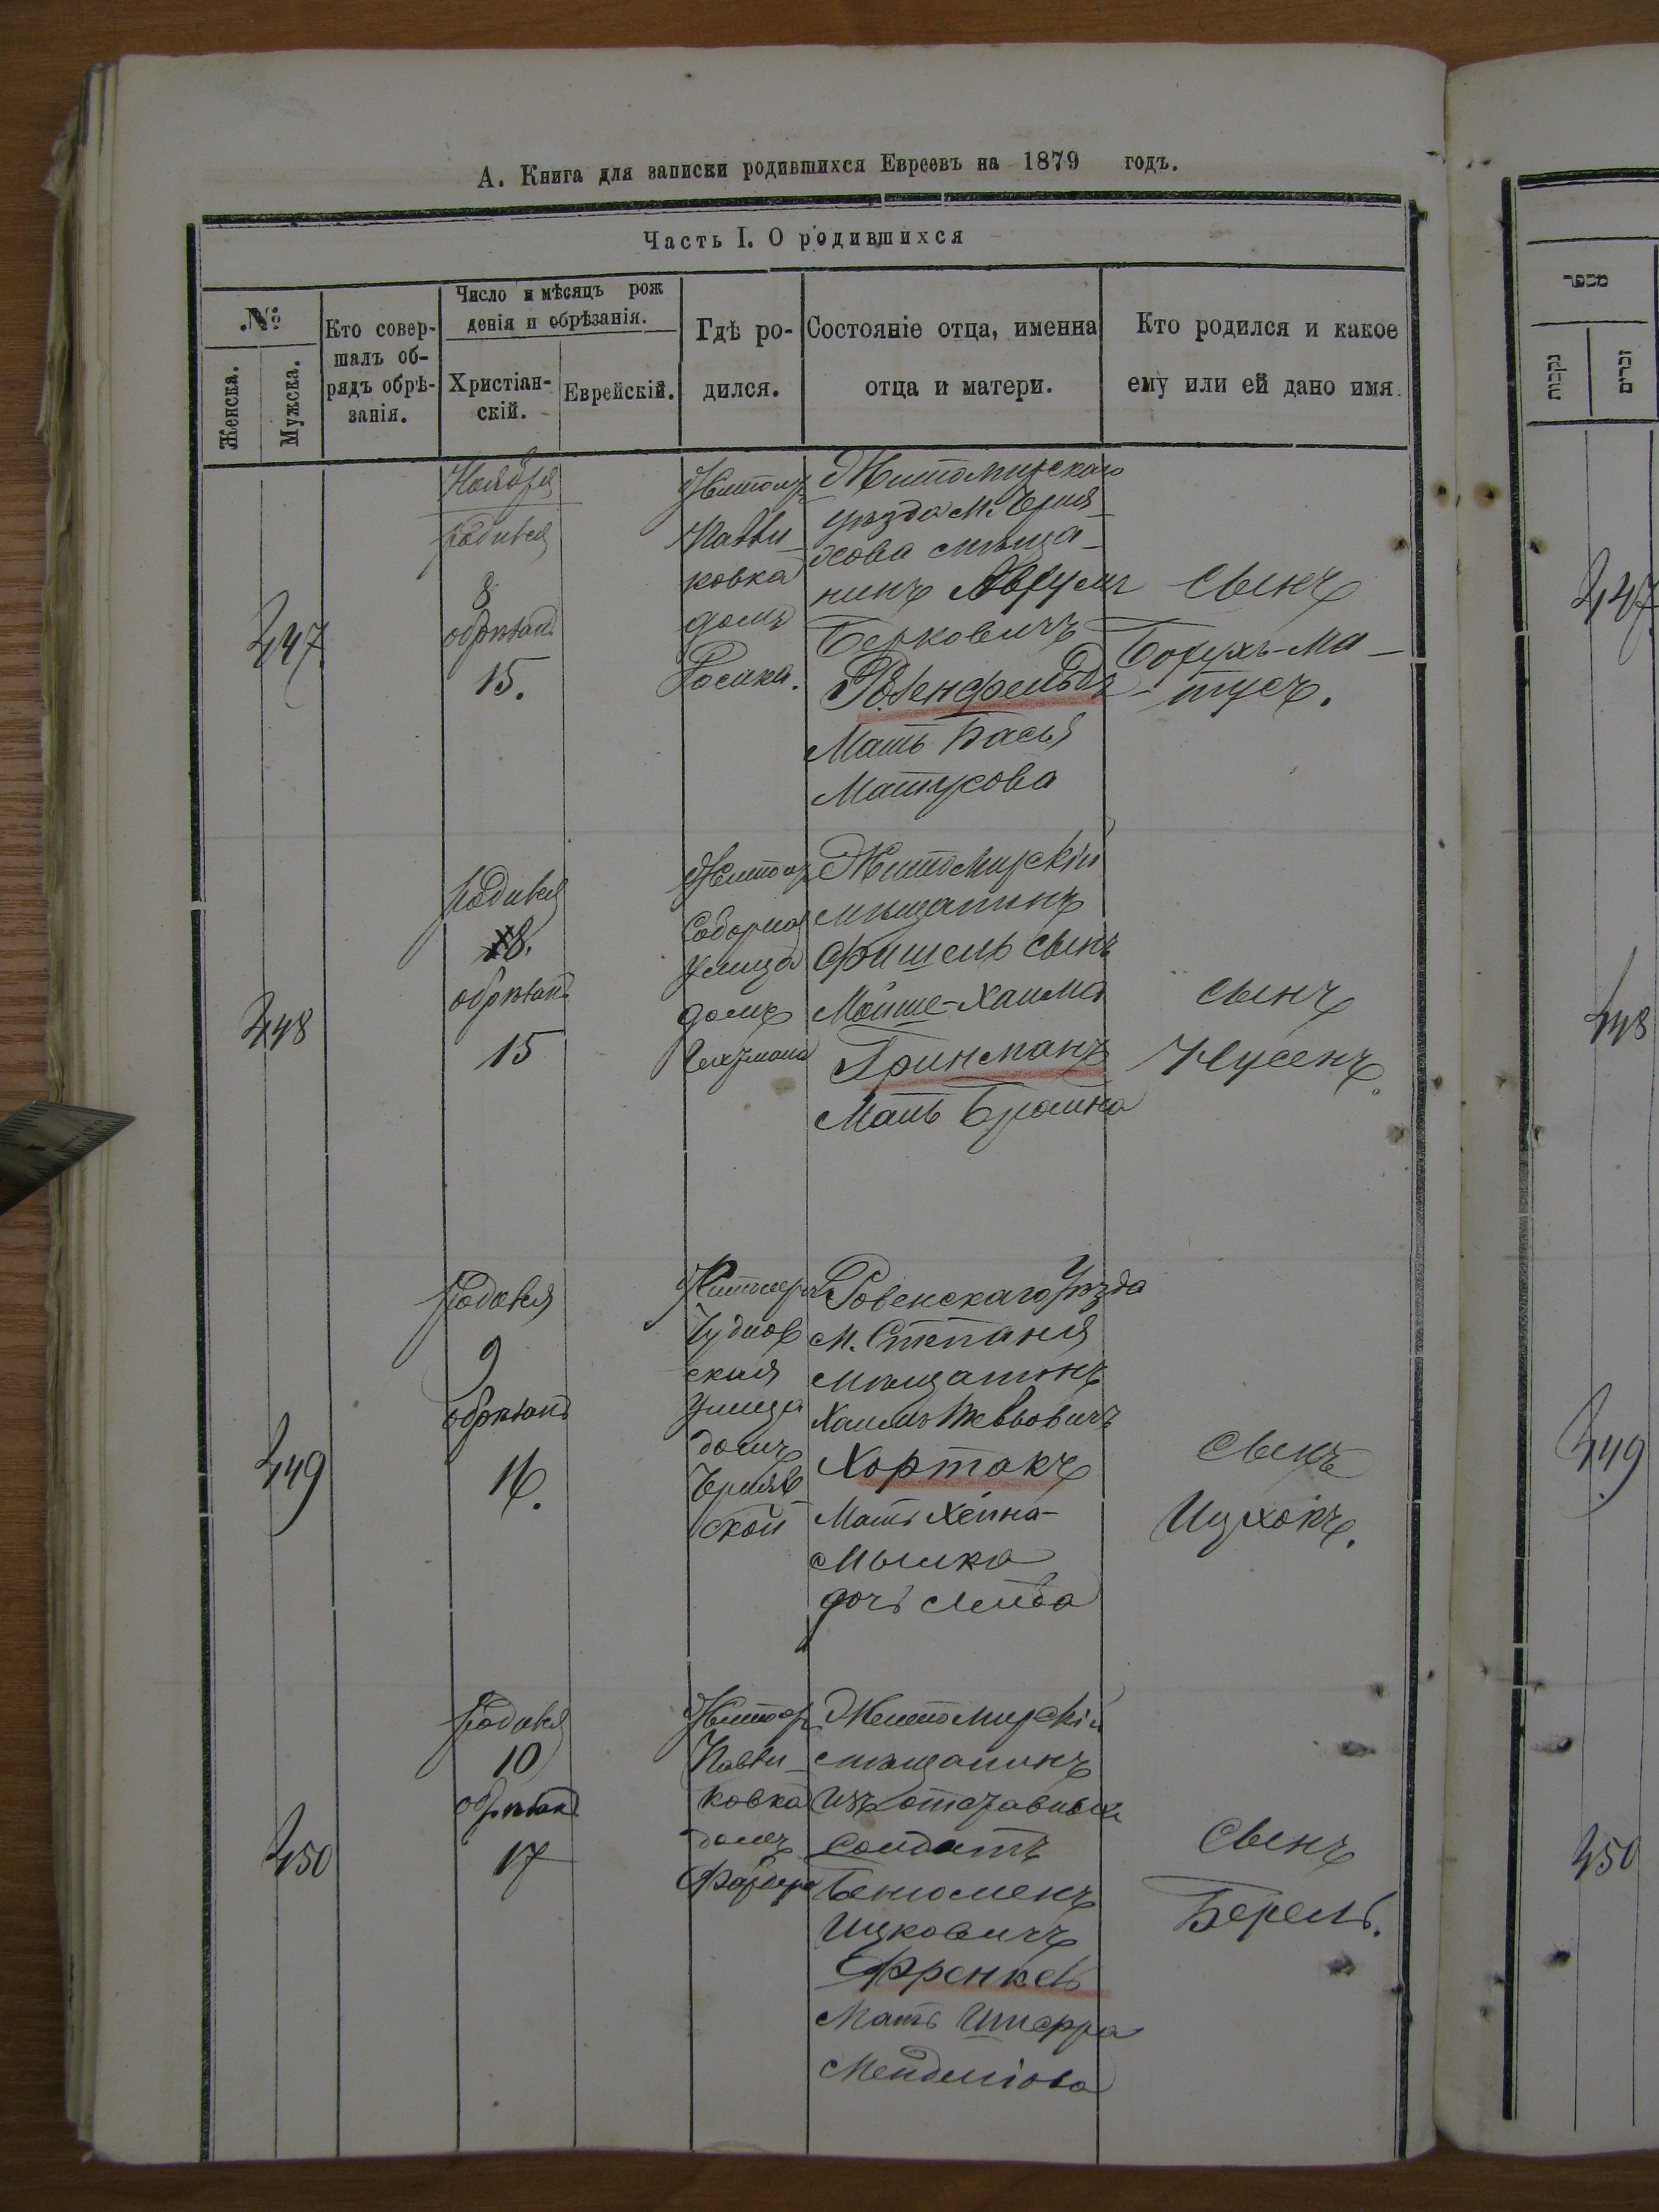 А. Книга для записки родившихся Евреевъ на 1879 годъ.
Часть I. О родившихся
№
Женска.
Мужска.
Кто совер-
шалъ об-
рядъ обрѣ-
занія.
Число и мѣсяцъ рож
денія и обрѣзанія.
Христіан-
скій.
Еврейскій.
Гдѣ ро-
дился.
Состояніе отца, именна
отца и матери.
Кто родился и какое
ему или ей дано имя.
447
Ноября
родився
8
обрѣзанъ
15.
Житомръ
ковка
домъ
Житомирскаго
уѣзда м. Черня-
хова мѣща-
нинъ Аврумъ
Берковичъ
Розенфельдъ
Мать Бася
Матусова
сынъ
Борухъ-Ма-
тусъ.
448
родився
8.
обрѣзанъ
15
Житомръ
Соборная
улица
домъ
Житомирскій
мѣщанинъ
Фишель сынъ
Мойше-Хаима
Гринманъ
Мать Брайна
сынъ
Нусенъ.
449
родився
9
обрѣзанъ
16.
Житомръ
Чуднов
ская
улица
домъ
Черняв
ской
Ровенскаго уѣзда
м. Степаня
мѣщанинъ
Хаимъ
Хортакъ
Мать Хейна-
Мышка
дочь Лейба
сынъ
Ицхокъ.
450
родився
10
обрѣзанъ
17
Житомръ
ковка
домъ
Житомирскій
мѣщанинъ
изъ отставныхъ
солдатъ
Бенюменъ
Ицковичъ
Френкель
Мать
Менделіова
сынъ
Берель.
מספר
נקבות
זכרים
447
448
449
450